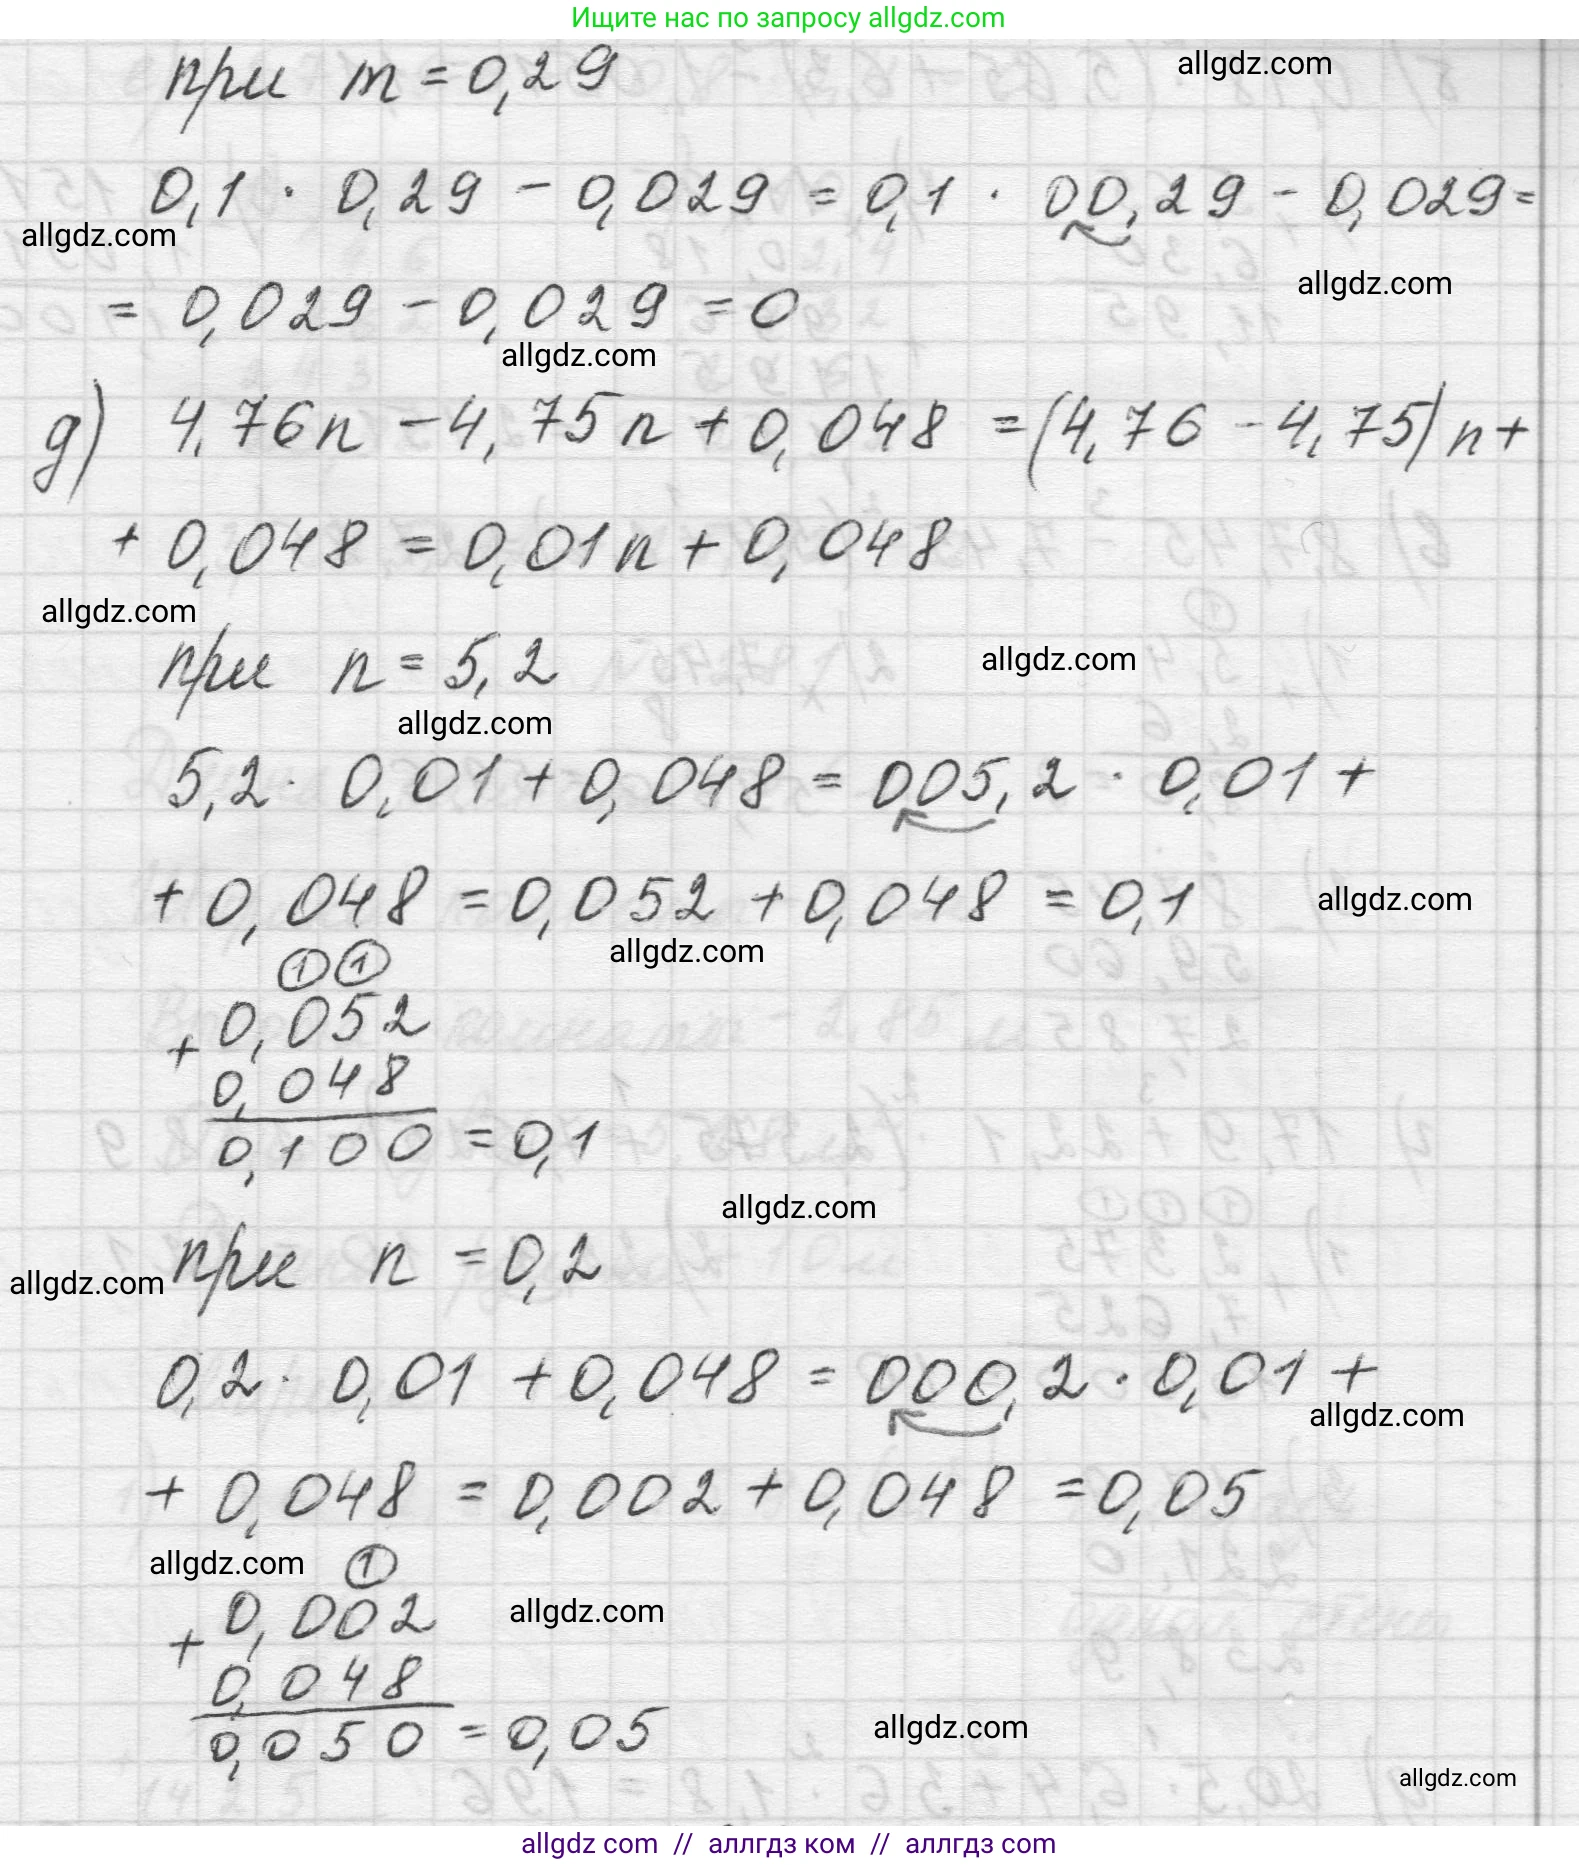 Ищите нас по запросу allgdz.com
при m = 0,29
allgdz.com
0,1 · 0,29 - 0,029 = 0,1 · 00,29 - 0,029 =
allgdz.com
allgdz.com
= 0,029 - 0,029 = 0
allgdz.com
д) 4,76n - 4,75n + 0,048 = (4,76 - 4,75)n +
+ 0,048 = 0,01n + 0,048
allgdz.com
при n = 5,2
allgdz.com
allgdz.com
5,2 · 0,01 + 0,048 = 005,2 · 0,01 +
+ 0,048 = 0,052 + 0,048 = 0,1
allgdz.com
allgdz.com
1 1
0,052
+
0,048
0,100 = 0,1
allgdz.com
при n = 0,2
allgdz.com
0,2 · 0,01 + 0,048 = 000,2 · 0,01 +
allgdz.com
+ 0,048 = 0,002 + 0,048 = 0,05
allgdz.com
1
0,002
allgdz.com
+
0,048
0,050 = 0,05
allgdz.com
allgdz.com
allgdz com // аллгдз ком // аллгдз com